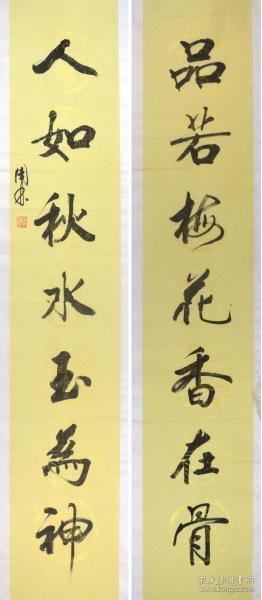 品若梅花香在骨
人如秋水玉为神
孔夫子旧书网